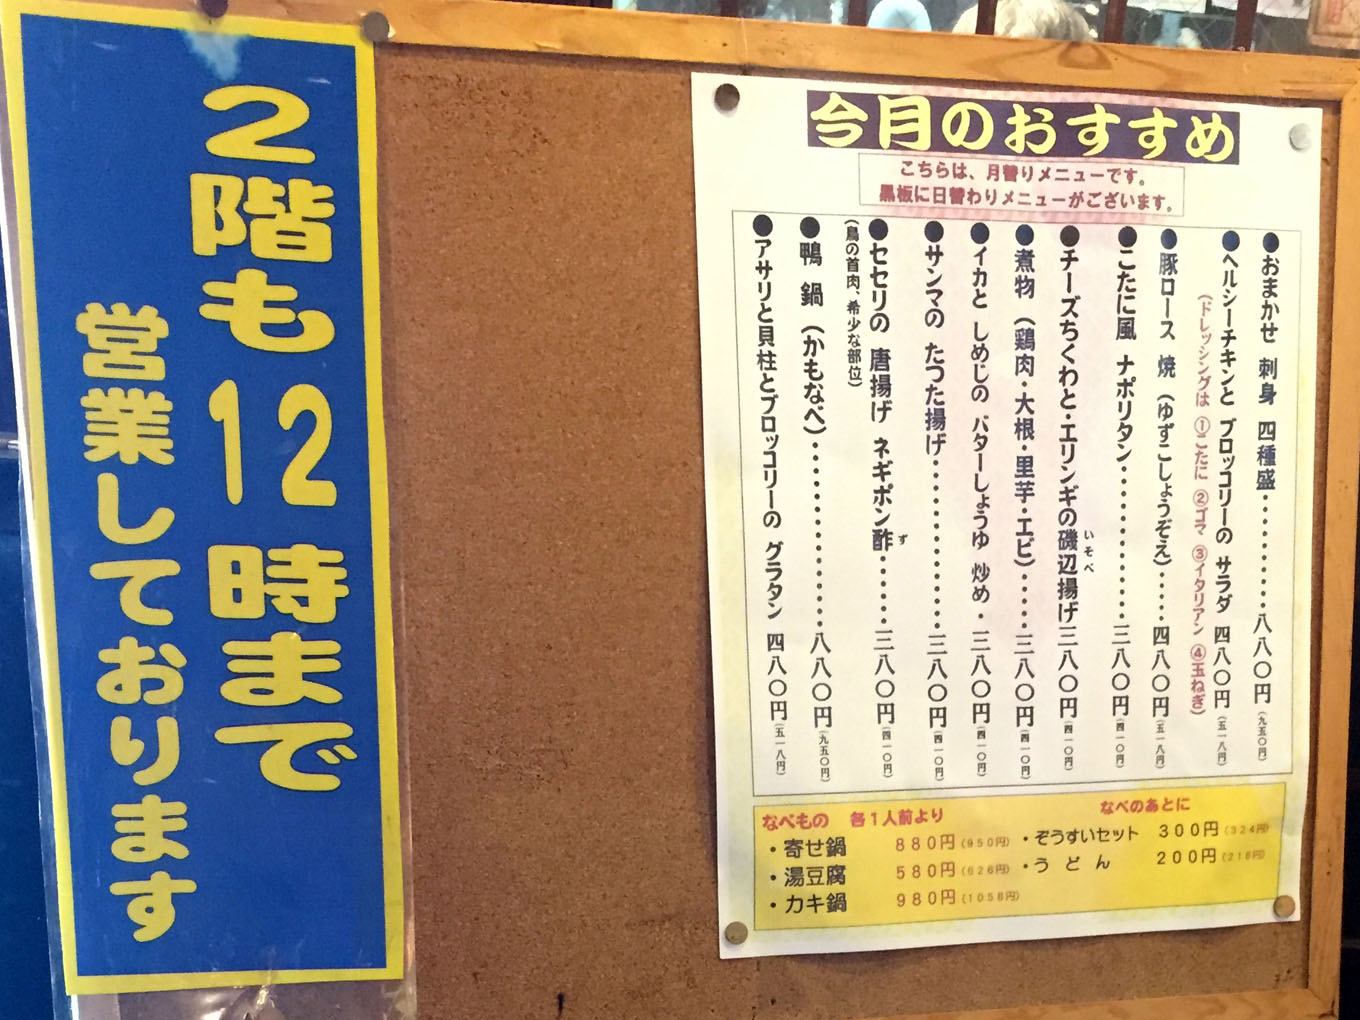 2階も12時まで
営業しております
今月のおすすめ
こちらは、月替りメニューです。
黒板に日替わりメニューがございます。
●おまかせ 刺身 四種盛・・・・・・・・・八八〇円(九五〇円)
●ヘルシーチキンと ブロッコリーの サラダ 四八〇円(五一八円)
(ドレッシングは ①こたに ②ゴマ ③イタリアン ④玉ねぎ)
●豚ロース 焼 (ゆずこしょうぞえ)・・・・四八〇円(五一八円)
●こたに風 ナポリタン・・・・・・・・・・・三八〇円(四一〇円)
●チーズちくわと・エリンギの磯辺揚げ三八〇円(四一〇円)
いそべ
●煮物 (鶏肉・大根・里芋・エビ)・・・・三八〇円(四一〇円)
●イカと しめじの バターしょうゆ 炒め・三八〇円(四一〇円)
●サンマの たつた揚げ・・・・・・・・・・・三八〇円(四一〇円)
●セセリの 唐揚げ ネギポン酢・・・・・・三八〇円(四一〇円)
ず
(鳥の首肉、希少な部位)
●鴨 鍋 (かもなべ)・・・・・・・・・・・・八八〇円(九五〇円)
●アサリと貝柱とブロッコリーの グラタン 四八〇円(五一八円)
なべもの 各1人前より
・寄せ鍋 880円(950円)
・湯豆腐 580円(626円)
・カキ鍋 980円(1058円)
なべのあとに
・ぞうすいセット 300円(324円)
・うどん 200円(216円)